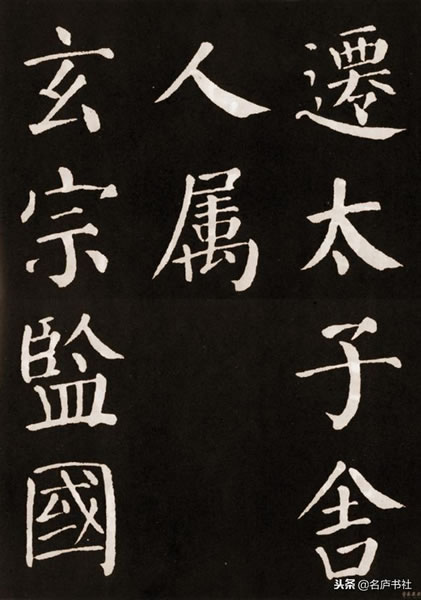 遷太子舍
人属
玄宗監國
头条@名庐书社